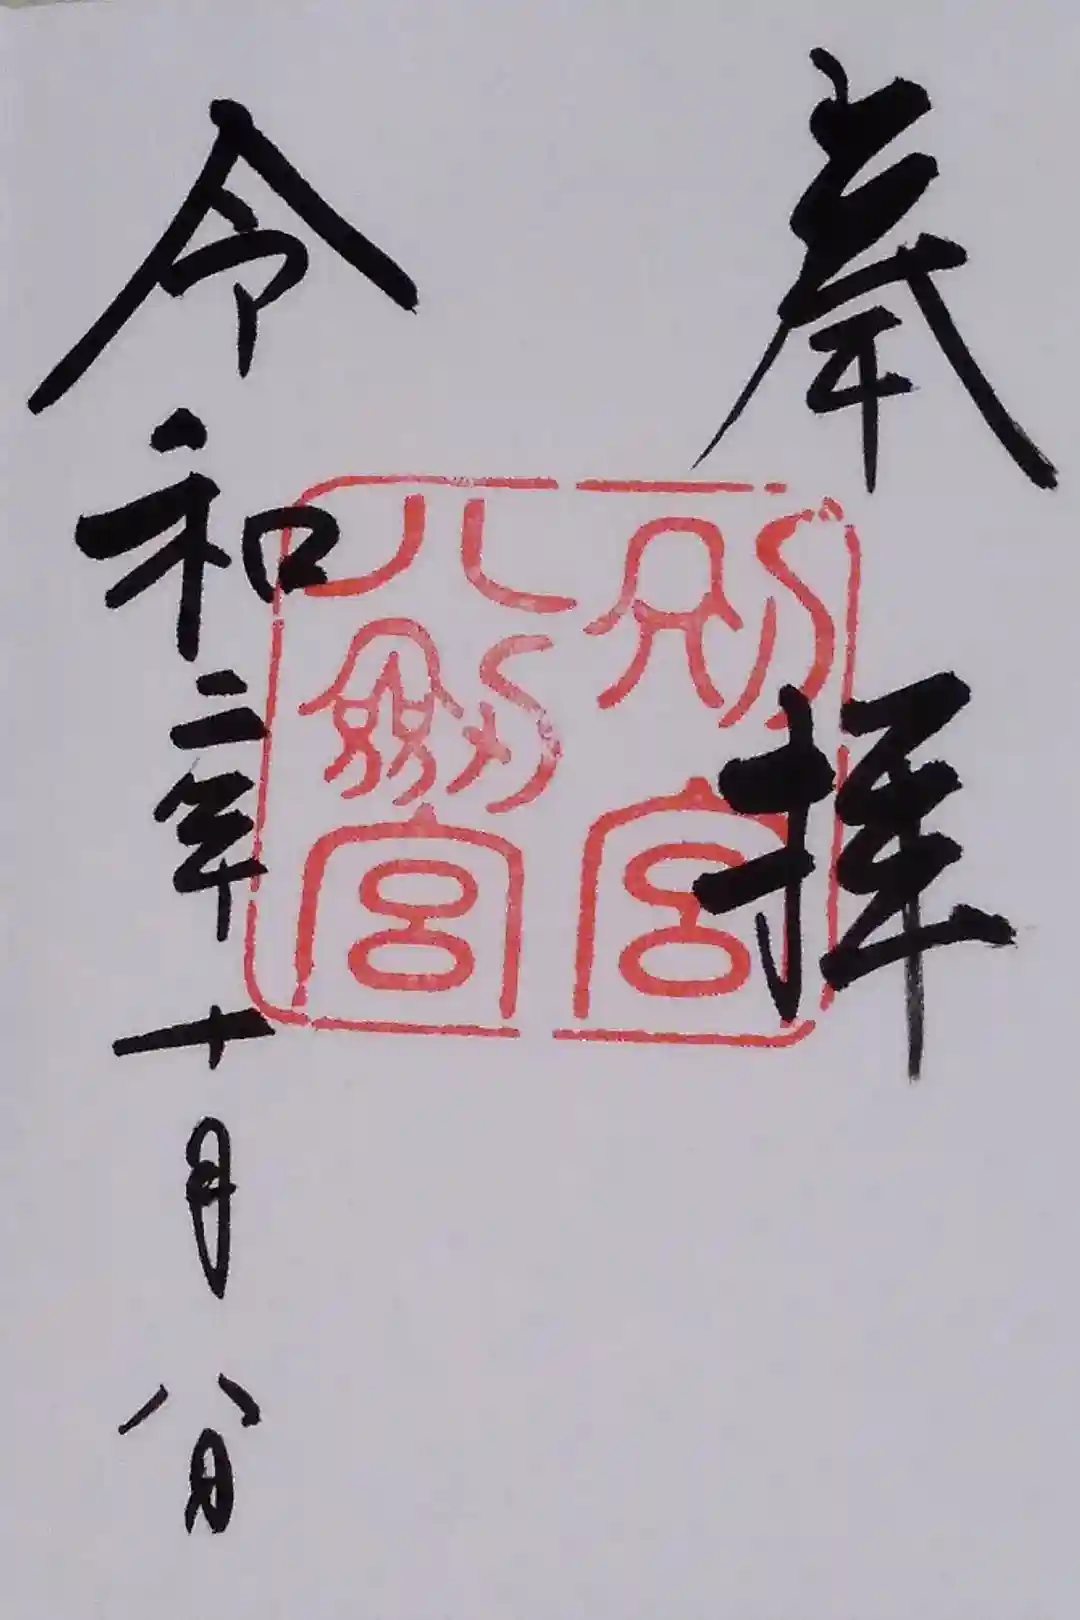 奉拝
別宮
八劔宮
令和二年十月八日